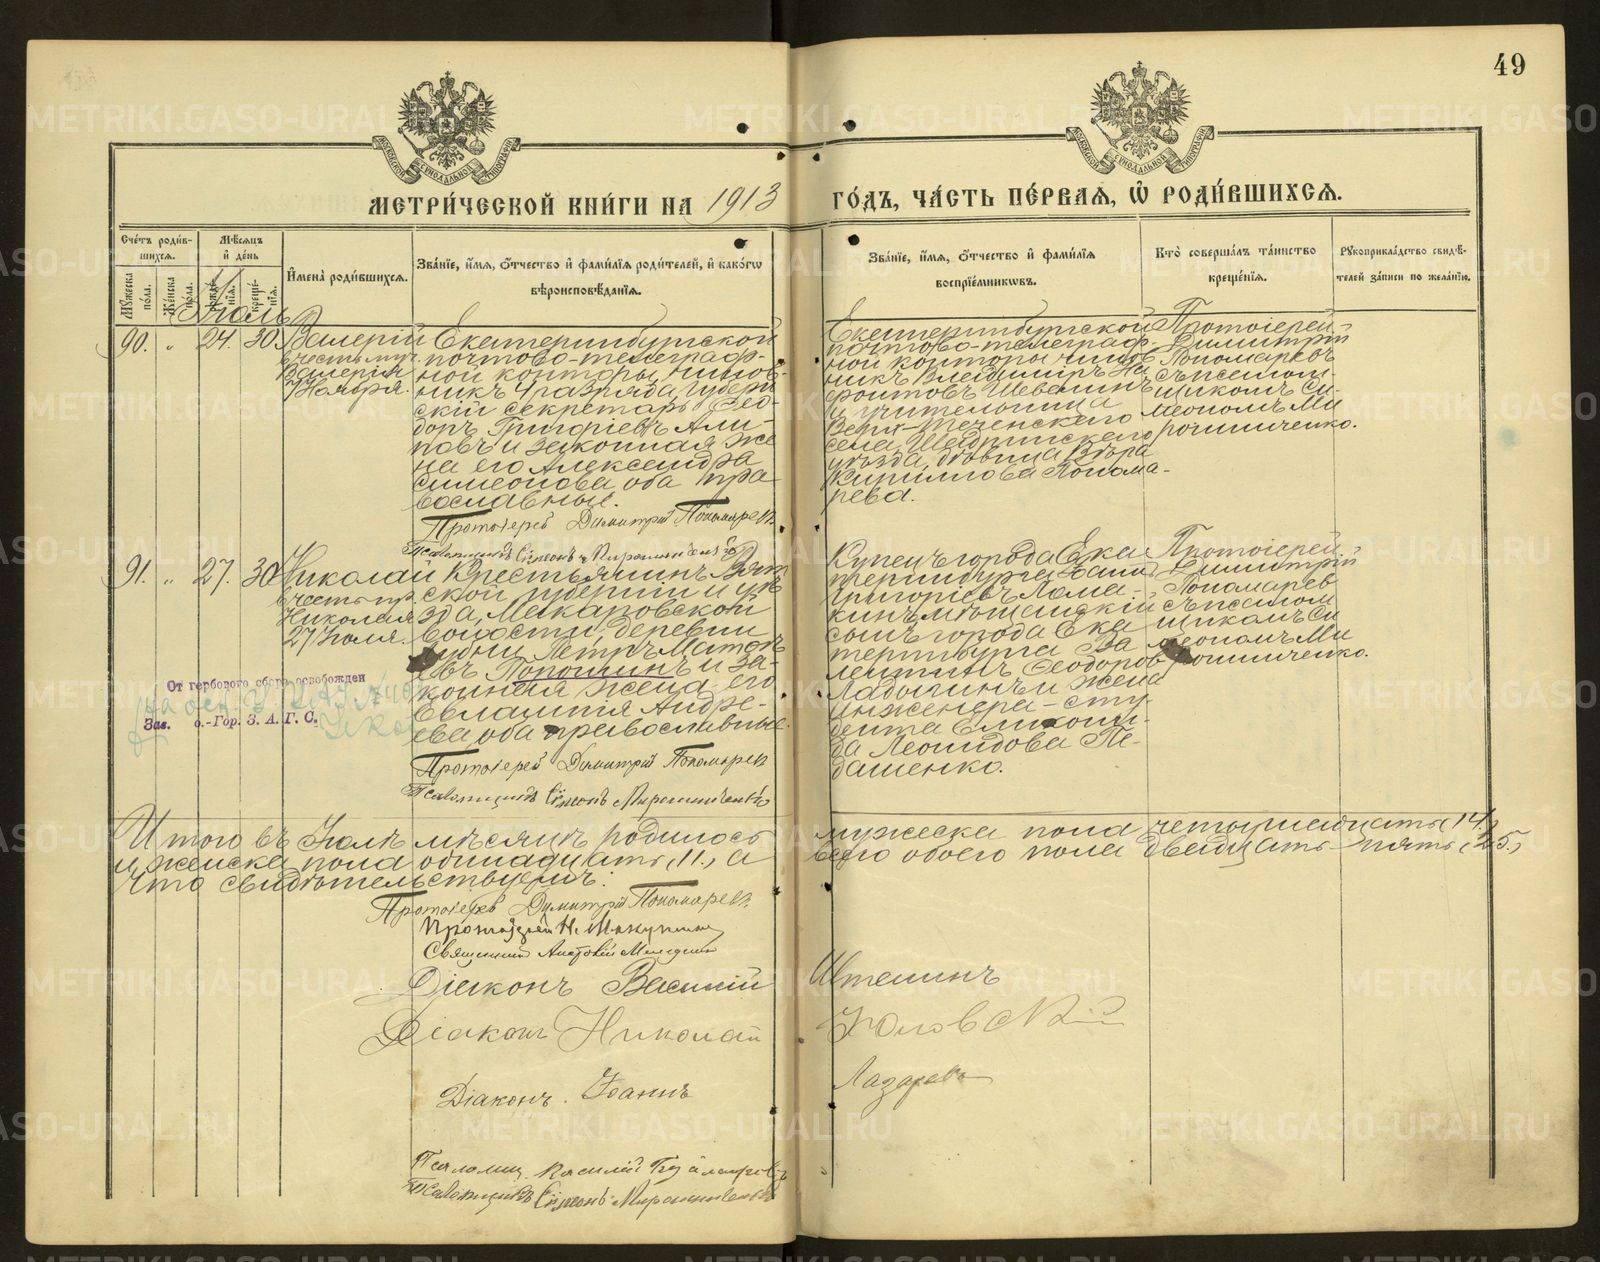 49
МОСКОВСКОЙ СѴНОДАЛЬНОЙ ТИПОГРАФІИ
МОСКОВСКОЙ СѴНОДАЛЬНОЙ ТИПОГРАФІИ
МЕТРИ́ЧЕСКОЙ КНИ́ГИ НА 1913
ГО́ДЪ, ЧА́СТЬ ПЕ́РВАѦ, Ѡ҆ РОДИ́ВШИХСѦ.
Сче́тъ роди́в-
шихсѧ.
Мꙋжеска по́ла.
Же́нска по́ла.
Мѣ́сѧцъ
и҆ де́нь
рожде́нїѧ.
креще́нїѧ.
И҆мена̀ роди́вшихсѧ.
Зва́нїе, и҆́мѧ, ѻ҆́тчество и҆ фами́лїѧ роди́телей, и҆ како́гѡ
вѣроисповѣ́данїѧ.
Зва́нїе, и҆́мѧ, ѻ҆́тчество и҆ фами́лїѧ
воспрїе́мникѡвъ.
Кто̀ соверша́лъ та́инство
креще́нїѧ.
Рꙋкоприкла́дство свидѣ́-
телей за́писи по жела́нїю.
Іюль
90. „ 24. 30.
Валерій
въ честь муч.
Валерія
7 Ноября.
Екатеринбургской
почтово-телеграф-
ной конторы, чинов-
никъ 4 разряда, губерн
скій секретарь Ѳео-
доръ Григоріевъ Али-
повъ и законная же
на его Александра
Симеонова, оба пра
вославные.
Протоіерей Димитрій Пономаревъ
Псаломщикъ Симеонъ Мирошниченко
Екатеринбургской
почтово-телеграф-
ной конторы чинов
никъ Владиміръ
Шевелинъ
и учительница
Верх-Теченскаго
села, Шадринскаго
уѣзда, дѣвица Вѣра
Кириллова Понома-
рева.
Протоіерей
Димитрій
Пономаревъ
съ псалом-
щикомъ Си-
меономъ Ми
рошниченко.
91. „ 27. 30
Николай
въ честь пр.
Николая
27 Іюля.
Крестьянинъ Вят
ской губерніи и уѣ
зда, Макаровской
волости, деревни
Петръ
Порошинъ и за-
конная жена его
Евлампія Андре-
ева, оба православные.
Протоіерей Димитрій Пономаревъ
Псаломщикъ Симеонъ Мирошниченко
Купецъ города Ека
теринбурга
Григоріевъ Лома-
кинъ, мѣщанскій
сынъ города Ека
теринбурга Ва
лентинъ Ѳеодоров
Ладыгинъ и жена
инженера-сту-
дента
Леонидова Пе-
дашенко.
Протоіерей
Димитрій
Пономарев
съ псалом
щикомъ Си
меономъ Ми
рошниченко.
От гербового сбора освобожден
Зав. о.-Гор. З. А. Г. С.
Итого въ Іюлѣ мѣсяцѣ родилось мужеска пола четырнадцать, 14,
и женска пола одинадцать, 11., а всего обоего пола двадцать пять, 25.,
Что свидѣтельствуемъ:
Протоіерей Димитрій Пономаревъ.
Протоіерей Н.
Священникъ
Діаконъ Василій Штенинъ
Діаконъ Николай
Діаконъ Іоаннъ Лазаревъ
Псаломщ. Василій
Псаломщикъ Симеонъ Мирошниченко
METRIKI.GASO-URAL.RU